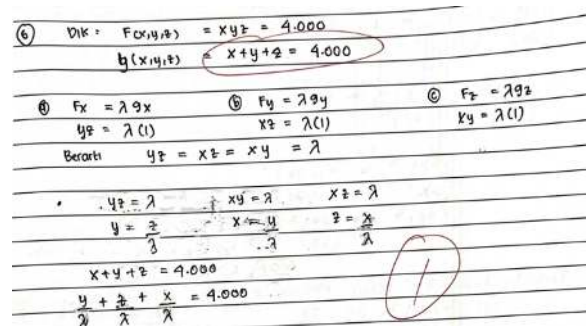 ⑥ Dik : F(x,y,z) = xyz = 4.000
g(x,y,z) = x+y+z = 4.000
ⓐ Fx = λgx ⓑ Fy = λgy ⓒ Fz = λgz
yz = λ(1) xz = λ(1) xy = λ(1)
Berarti yz = xz = xy = λ
• yz = λ xy = λ xz = λ
y = z/λ x = y/λ z = x/λ
x+y+z = 4.000
y/λ + z/λ + x/λ = 4.000
1